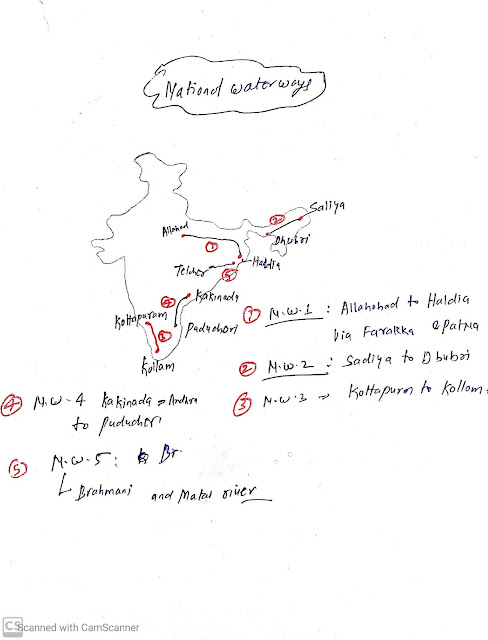 National waterways
Saliya
Allahad
①
②
Dhubri
Haldia
Telcher
⑤
④
Kakinada
Kottapuram
③
Paduchori
Kollam
① N.W.1 : Allahabad to Haldia
via Farakka & Patna
② N.W.2 : Sadiya to Dhubri
③ N.W.3 ⇒ Kottapuram to Kollam.
④ N.W-4 Kakinada = Andhra
to puducheri
⑤ N.W-5: Br.
Brahmani and Matai river
CS Scanned with CamScanner